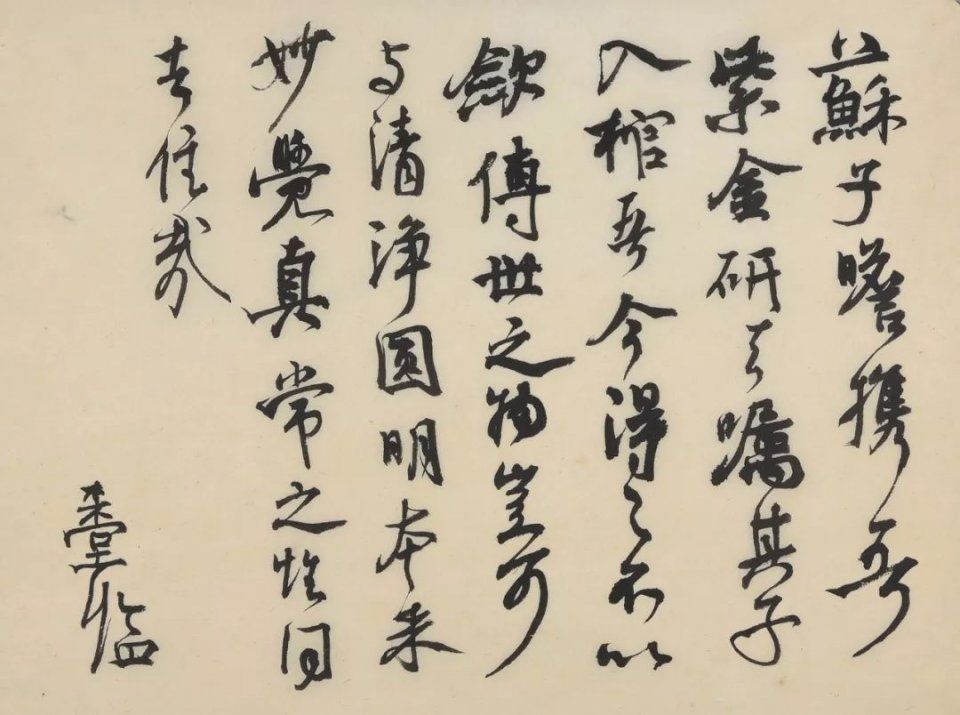 蘇子瞻携吾
紫金研去嘱其子
入棺吾今得之不以
歛傳世之物豈可
与清浄圓明本来
妙覺真常之性同
去住哉
木堂臨